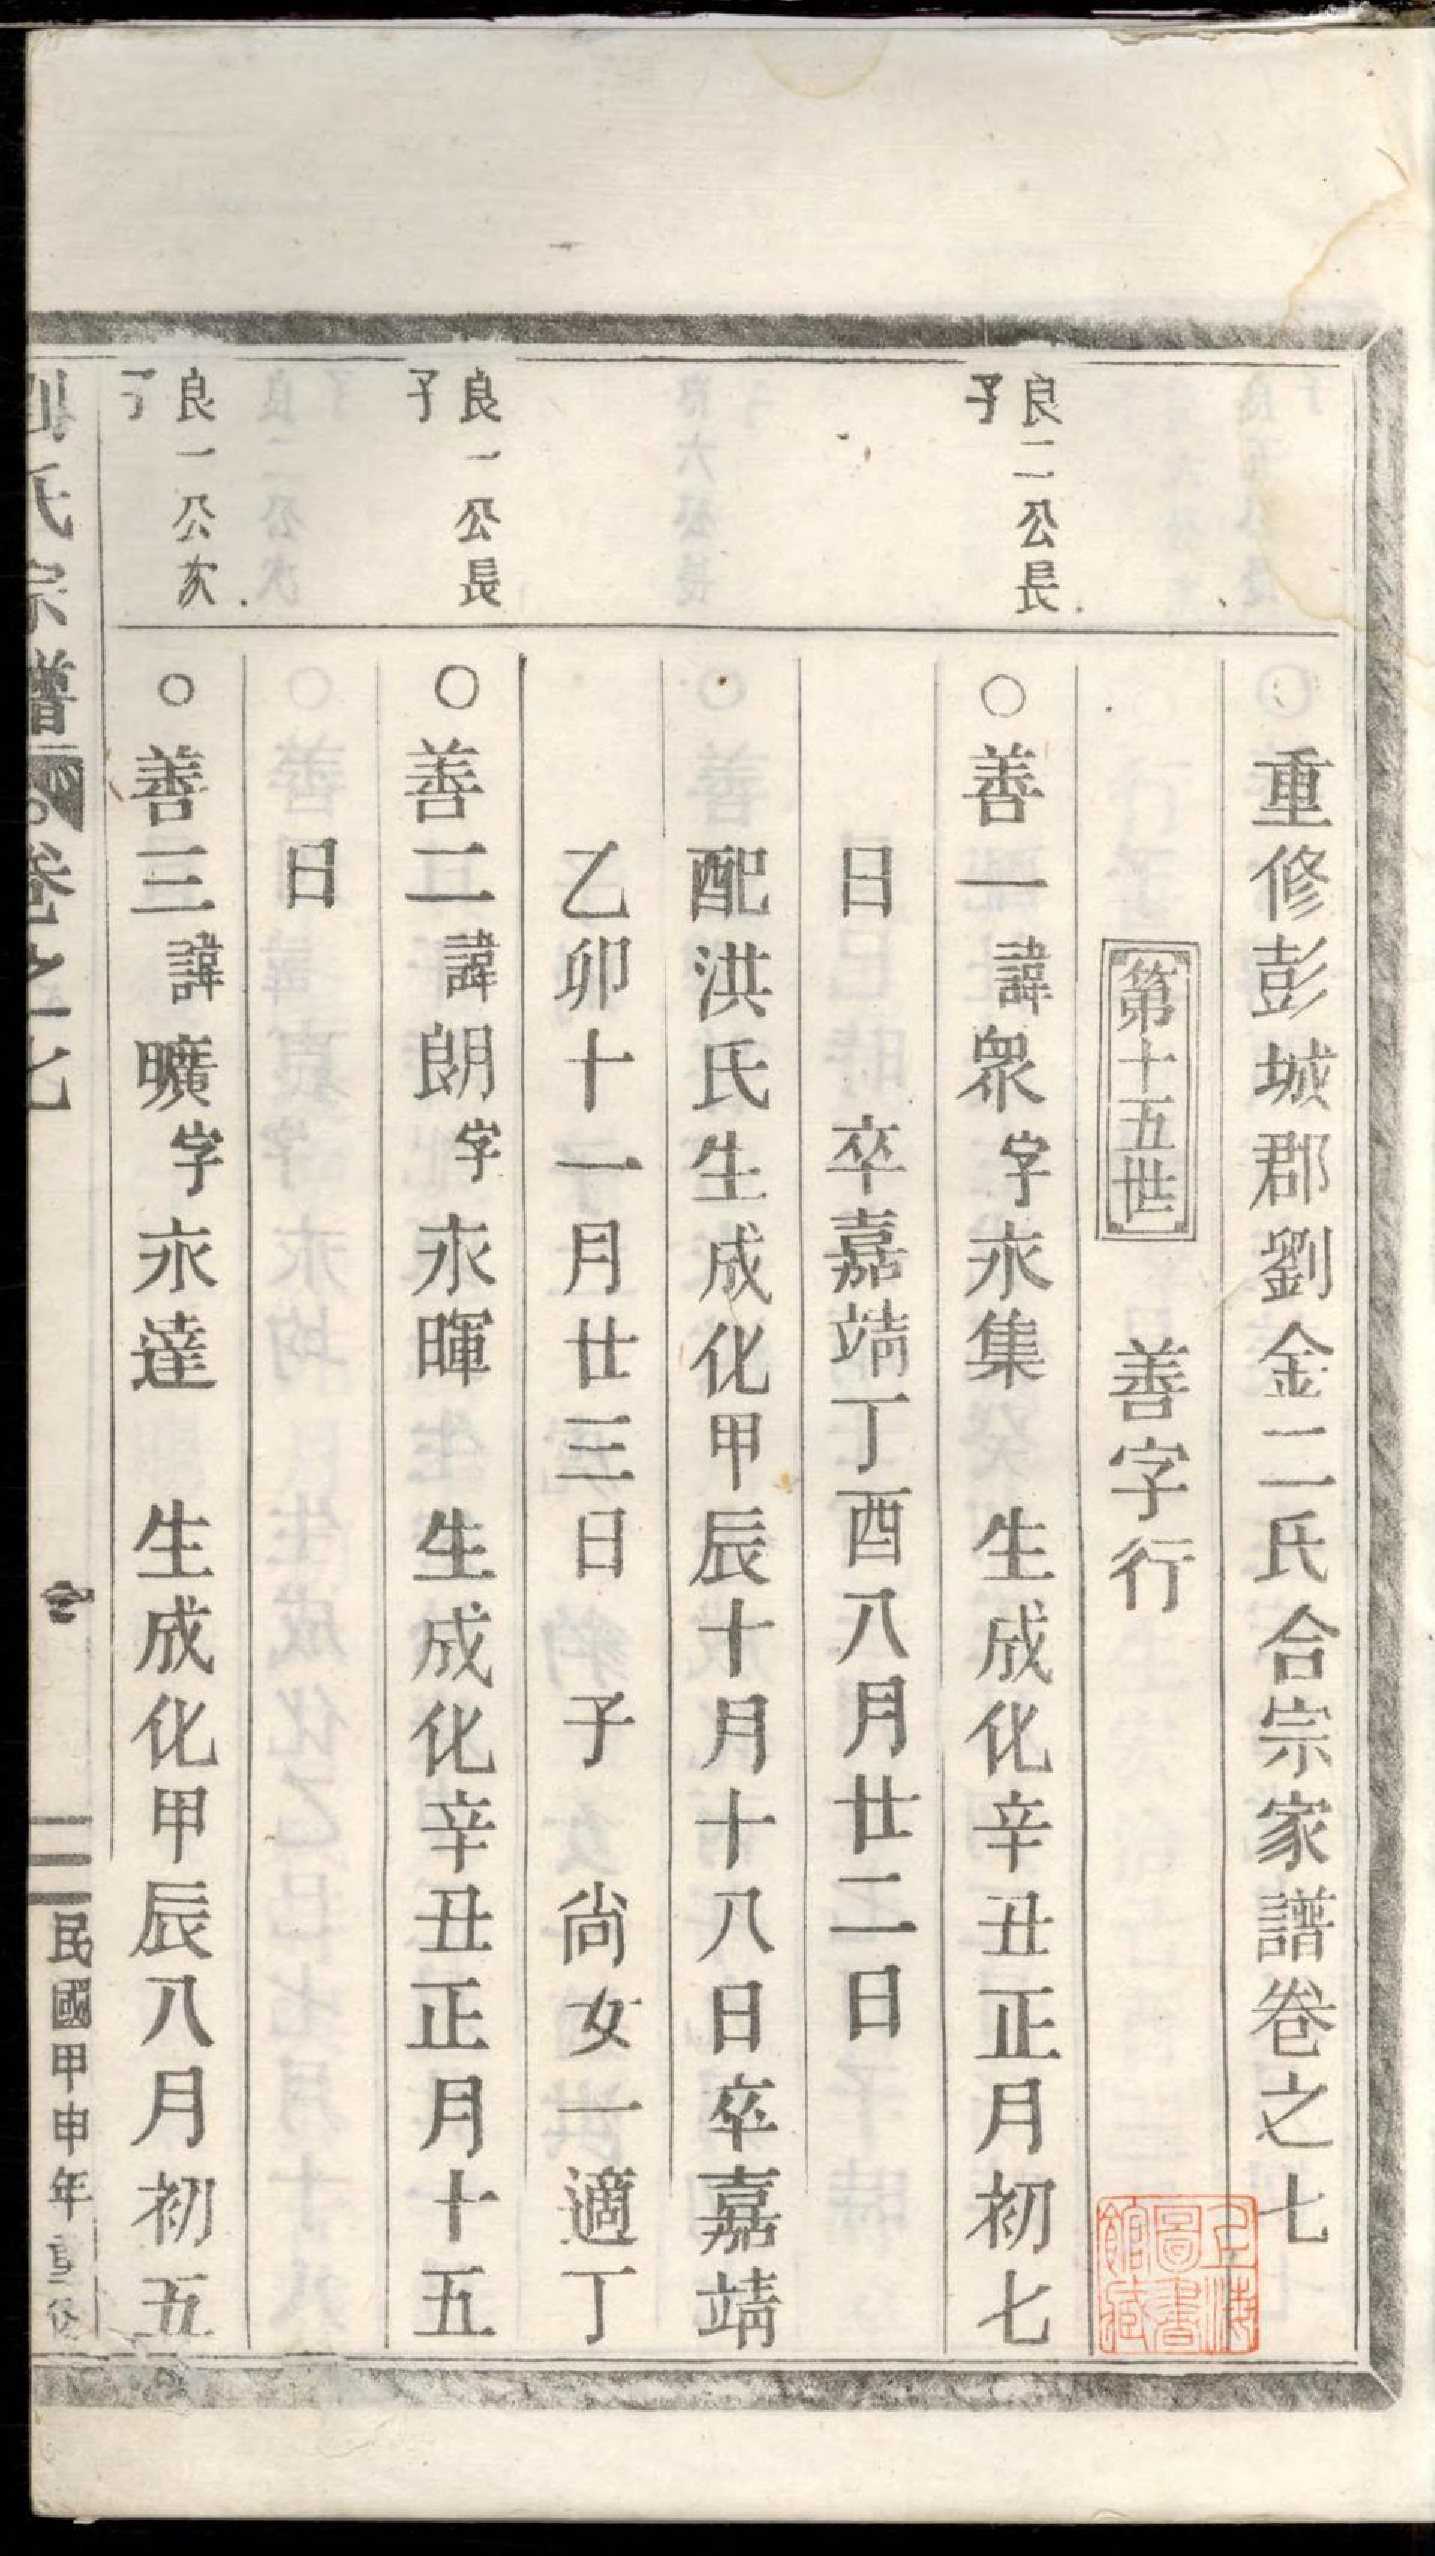 重修彭城郡劉金二氏合宗家譜卷之七
第十五世 善字行
良二公長
子
○善一諱眾字永集 生成化辛丑正月初七
日 卒嘉靖丁酉八月廿二日
配洪氏生成化甲辰十月十八日卒嘉靖
乙卯十一月廿三日 子 尙女一適丁
良一公長
子
○善二諱朗字永暉 生成化辛丑正月十五
日
良一公次
子
○善三諱曠字永達 生成化甲辰八月初五
劉氏宗譜 卷之七 二 民國甲申年重修
上海
圖書
館藏